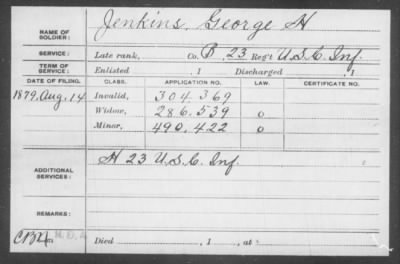 NAME OF SOLDIER: Jenkins, George H
SERVICE: Late rank, Co. B, 23 Reg't U.S.C. Inf.
TERM OF SERVICE: Enlisted , 1 Discharged , 1
DATE OF FILING. CLASS. APPLICATION NO. LAW. CERTIFICATE NO.
1879. Aug. 14 Invalid, 304.369
Widow, 286.539 o
Minor, 490.422 o
ADDITIONAL SERVICES: H 23 U.S.C. Inf.
REMARKS:
Died , 1 , at